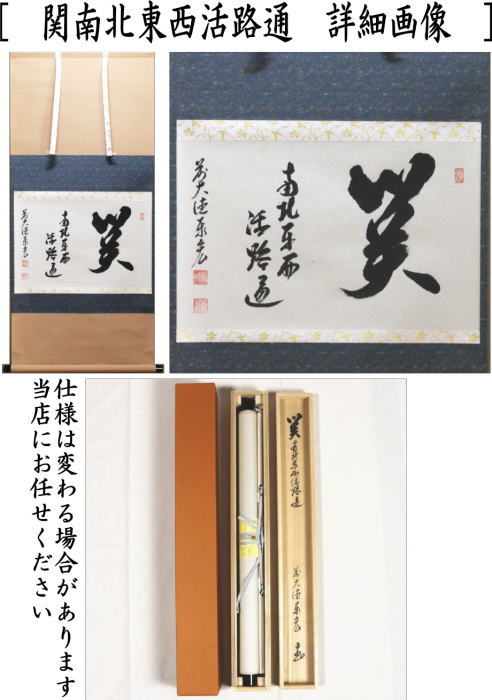 [ 関南北東西活路通 詳細画像 ]
関
南北东西
活路通
前大徳
関南北东西活路通
前大徳
仕様は変わる場合があります
当店にお任せください